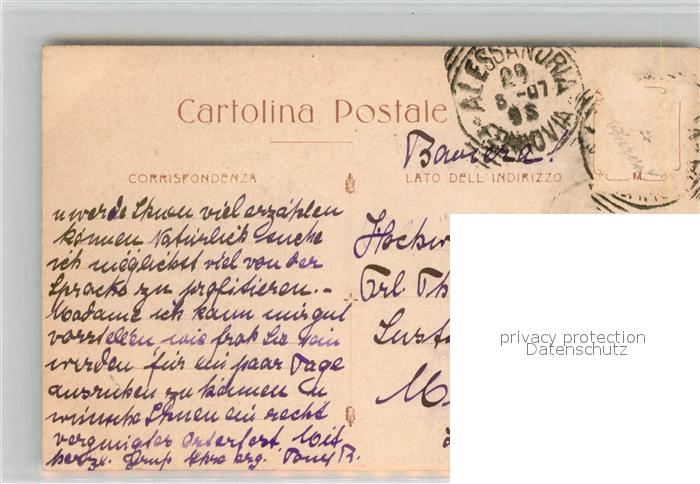 Cartolina Postale
ALESSANDRIA
29
8-07
9S
FERROVIA
Baviera!
CORRISPONDENZA
LATO DELL'INDIRIZZO
M
u werde Ihnen viel erzählen
können Natürlich suche
ich möglichst viel von der
Sprache zu profitieren. -
Madame ich kann mir gut
vorstellen wie froh Sie sein
werden für ein paar Tage
ausruhen zu können u
wünsche Ihnen ein recht
vergnügtes Osterfest. Mit
herzl. Gruß Ihre erg.
Hochw
Frl. Th
Lust
M
privacy protection
Datenschutz